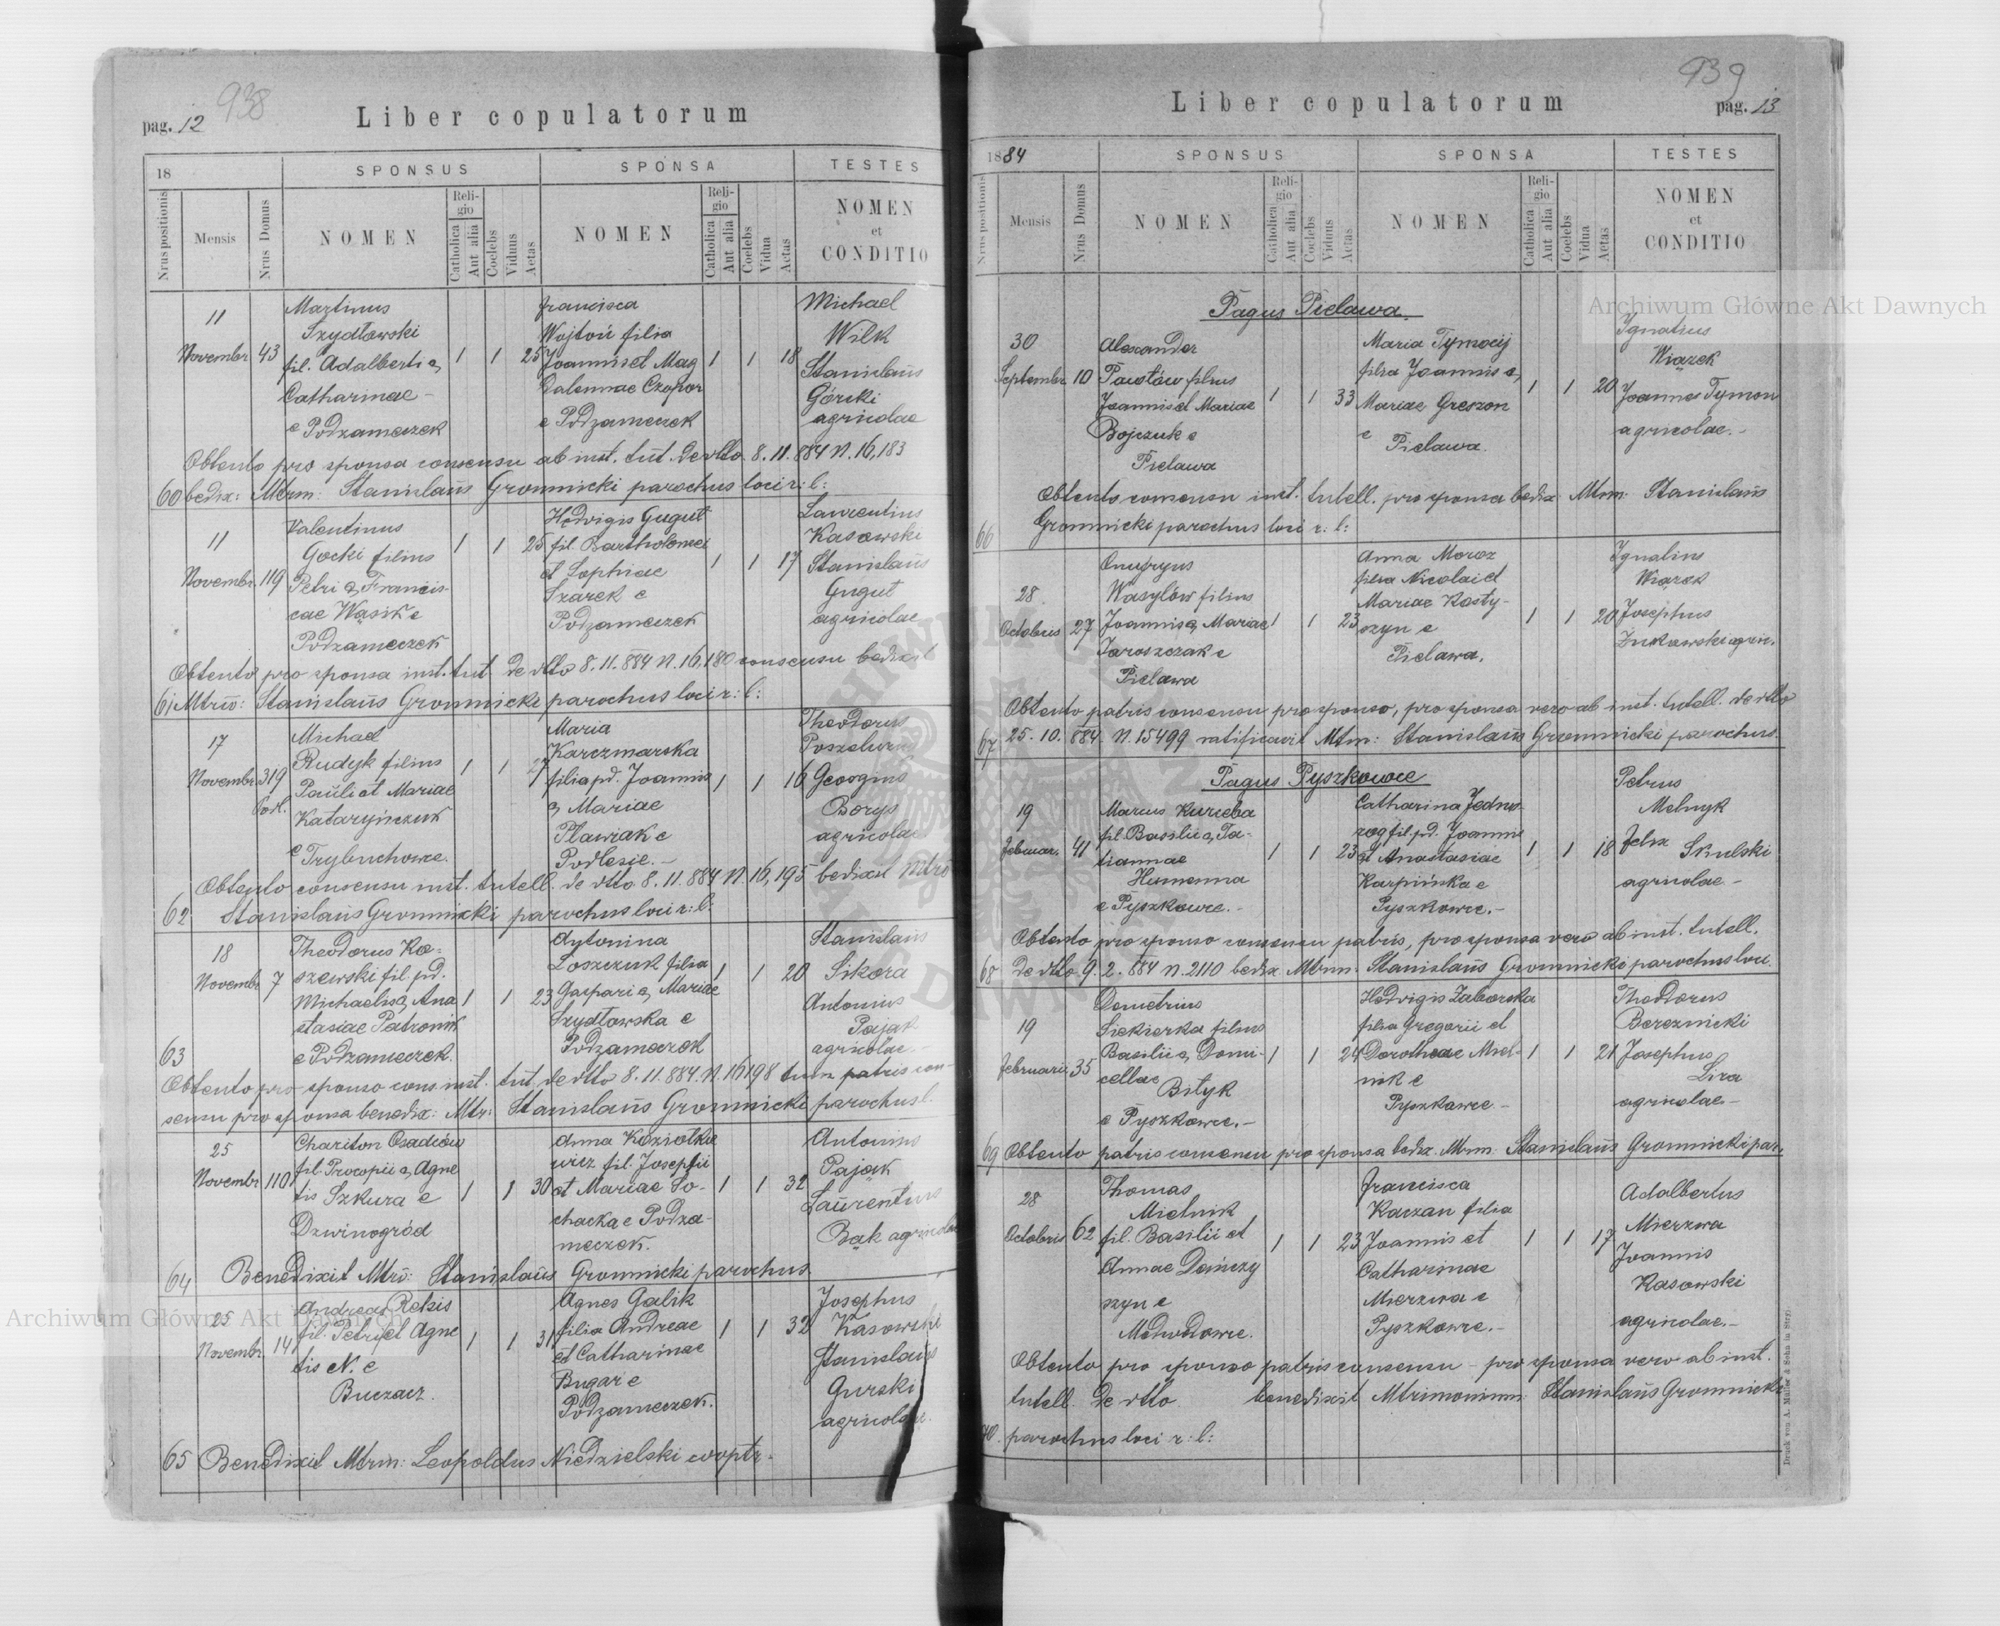 938
pag. 12
Liber copulatorum
18
SPONSUS
SPONSA
TESTES
Nrus positionis
Mensis
Nrus Domus
NOMEN
Religio
Catholica
Aut alia
Coelebs
Viduus
Aetas
NOMEN
Religio
Catholica
Aut alia
Coelebs
Vidua
Aetas
NOMEN
et
CONDITIO
11
Novembr 43
Martinus
Szydłowski
fil. Adalberti &
Catharinae -
e Podzameczek
1 1 25
Francisca
Wojtoń filia
Joannis et Mag
dalennae Czopor
e Podzameczek
1 1 18
Michael
Wilk
Stanislaus
Górski
agricolae
Obtento pro sponsa consensu ab inst. tut. de dtto. 8. 11. 884 N. 16,183
60 bedix: Mtrm: Stanislaus Gromnicki parochus loci r: l:
11
Novembr. 119
Valentinus
Gocki filius
Petri & Francis-
cae Wąsik e
Podzameczek
1 1 25
Hedvigis Gugut
fil. Bartholomei
et Sophiae
Szarek e
Podzameczek
1 1 17
Laurentius
Kasowski
Stanislaus
Gugut
agricolae
Obtento pro sponsa inst. tut de dtto 8. 11. 884 N. 16,180 consensu bedixit
61 Mtrm: Stanislaus Gromnicki parochus loci r: l:
17
Novembr 319
Michael
Rudyk filius
Pauli et Mariae
Kataryńczuk
e Trybuchowce.
1 1 27
Maria
Karczmarska
filia pd. Joannis
& Mariae
Pławiak e
Podlesie. -
1 1 16
Theodorus
Georgius
Borys
agricolae
Obtento consensu inst. tutell. de dtto 8. 11. 884 N. 16,195 bedixit Mtrm
62 Stanislaus Gromnicki parochus loci r: l:
18
Novembr 7
Theodorus Ko=
szewski fil. pd.
Michaelis & Ana
stasiae Patronik
e Podzameczek.
1 1 23
Antonina
Loszczuk filia
Gaspari & Mariae
Szydłowska e
Podzameczek
1 1 20
Stanislaus
Sikora
Antonius
Pająk
agricolae. -
63
Obtento pro sponso cons. inst. tut. de dtto 8. 11. 884. N. 16198 tum patris con-
sensu pro sponsa benedix: Mtr: Stanislaus Gromnicki parochus l.
25
Novembr 110
Chariton Osadców
fil. Procopii & Agne
tis Szkura e
Dzwinogród
1 1 30
Anna Koziołkie
wicz fil. Josephi
et Mariae So-
chacka e Podza-
meczek.
1 1 32
Antonius
Pająk
Laurentius
Bąk agricolae
64 Benedixit Mtrm: Stanislaus Gromnicki parochus
25
Novembr. 14
Andreas Rekis
fil. Petri et Agne
tis N. e
Buczacz.
1 1 31
Agnes Galik
filia Andreae
et Catharinae
Bugar e
Podzameczek.
1 1 32
Josephus
Kasowski
Stanislaus
Gurski
agricolae.
65 Benedixit Mtrm: Leopoldus Niedzielski cooptr.
939
Liber copulatorum
pag. 13
1884
SPONSUS
SPONSA
TESTES
Nrus positionis
Mensis
Nrus Domus
NOMEN
Religio
Catholica
Aut alia
Coelebs
Viduus
Aetas
NOMEN
Religio
Catholica
Aut alia
Coelebs
Vidua
Aetas
NOMEN
et
CONDITIO
Pagus Pielawa.
30
Septembr. 10
Alexander
Pawłów filius
Joannis et Mariae
Bojczuk e
Pielawa
1 1 33
Maria Tymocij
filia Joannis &
Mariae Greszon
e
Pielawa.
1 1 20
Ignatius
Wiązek
Joannes Tymon
agricolae. -
Obtento consensu inst. tutell. pro sponsa bedix: Mtrm: Stanislaus
66 Gromnicki parochus loci r: l:
28
Octobris 27
Onufryus
Wasylów filius
Joannis & Mariae
Jaroszczak e
Pielawa
1 1 23
Anna Moroz
filia Nicolai et
Mariae Kosty-
szyn e
Pielawa.
1 1 20
Ignatius
Wiązek
Josephus
Żukowski agric.
Obtento patris consensu pro sponso, pro sponsa vero ab inst. tutell. de dtto
67 25. 10. 884. N. 15499 ratificavit Mtm: Stanislaus Gromnicki parochus.
Pagus Pyszkowce
19
Februar. 41
Marcus Kurceba
fil. Basilii & Ta-
tiannae
Humenna
e Pyszkowce. -
1 1 23
Catharina Jedno
rog fil. pd. Joannis
et Anastasiae
Karpińska e
Pyszkowce. -
1 1 18
Petrus
Melnyk
Felix Skulski
agricolae -
Obtento pro sponso consensu patris, pro sponsa vero ab inst. tutell.
68 de dtto 9. 2. 884 N. 2110 bedix. Mtrm. Stanislaus Gromnicki parochus loci.
19
Februarii 35
Demetrius
Siekierka filius
Basilii & Domi-
cellae
Bityk
e Pyszkowce. -
1 1 24
Hedvigis Zaborska
filia Gregorii et
Dorotheae Miel-
nik e
Pyszkowce -
1 1 21
Theodorus
Bereznicki
Josephus
Lira
agricolae -
69 Obtento patris consensu pro sponsa bedix. Mtrm. Stanislaus Gromnicki par.
28
Octobris 62
Thomas
Mielnik
fil. Basilii et
Annae Dejńczy
szyn e
Medwedowce.
1 1 23
Francisca
Kaczan filia
Joannis et
Catharinae
Mierzwa e
Pyszkowce. -
1 1 17
Adalbertus
Mierzwa
Joannis
Kasowski
agricolae. -
Obtento pro sponso patris consensu - pro sponsa vero ab inst.
tutell. de dtto benedixit Mtrimonium Stanislaus Gromnicki
70. parochus loci r: l:
Druck von A. Müller & Sohn in Stryj.
Archiwum Główne Akt Dawnych
Archiwum Główne Akt Dawnych